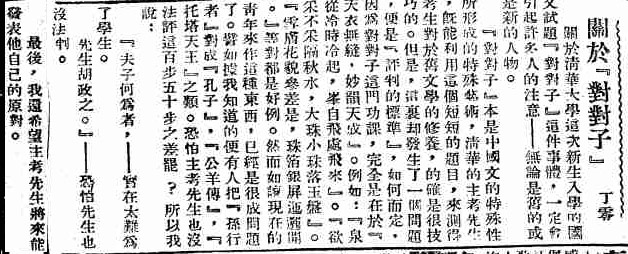 關於『對對子』
丁零
關於清華大學這次新生入學的國
文試題『對對子』這件事體，一定會
引起許多人的注意——無論是舊的或
是新的人物。
『對對子』本是中國文的特殊性
所形成的特殊藝術，清華的主考先生
，旣能利用這個短短的題目，來測得
考生對於舊文學的修養，的確是很技
巧的。但是，這裏却發生了一個問題
，便是『評判的標準』，如何而定，
因爲對對子這門功課，完全是在於『
天衣無縫，妙韻天成』。例如：『泉
從冷時冷起，峯自飛處飛來』。『欲
采不采隔秋水，大珠小珠落玉盤』。
『雪膚花貌參差是，珠箔銀屏迤邐開
』。等對都是好例。然而如讓現在的
青年來作這種東西，已經是很成問題
了。譬如據我知道的便有人把『孫行
者』對成『孔子』，『公羊傳』，『
托塔天王』之類。恐怕主考先生也沒
法評這百步五十步之差罷？所以我
說：
『夫子何爲者，——實在太難爲
了學生。
先生胡政之。』——恐怕先生也
沒法判。
最後，我還希望主考先生將來能
發表他自己的原對。